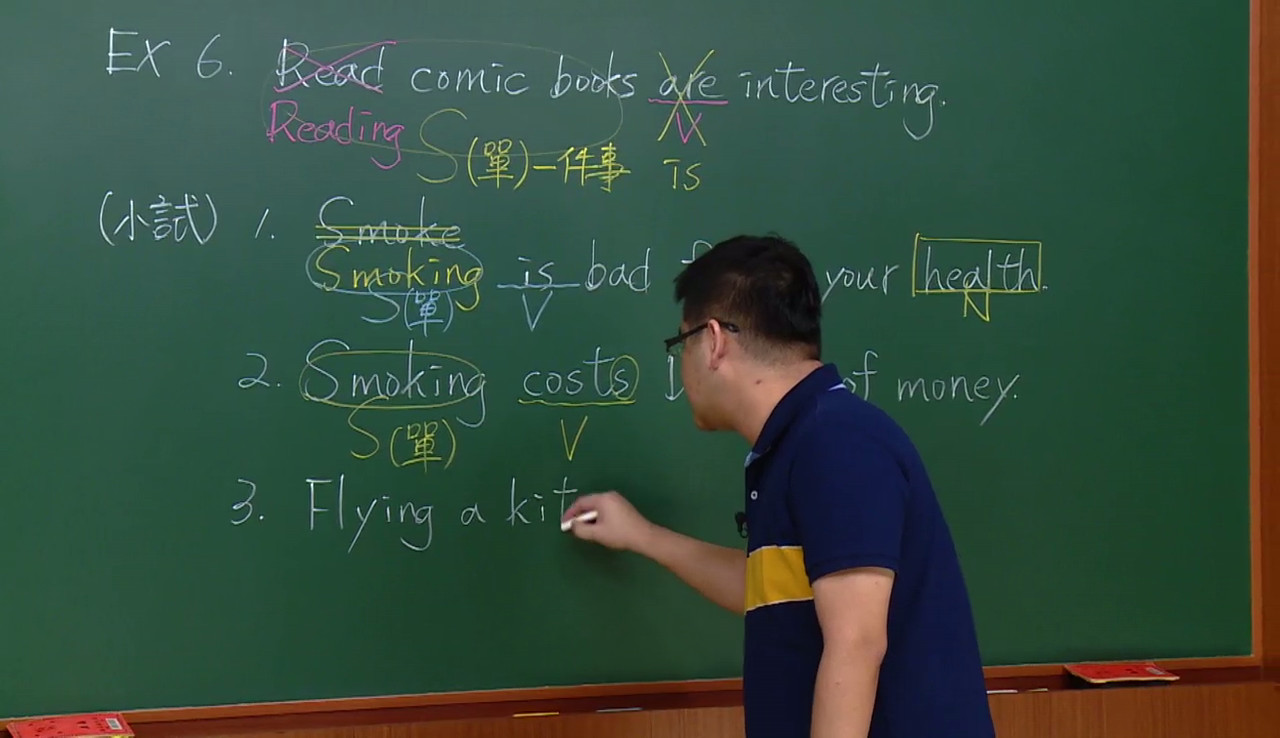 Ex 6. Read comic books are interesting.
Reading S(單)一件事 V is
(小試) 1. Smoke
Smoking is bad your health.
S(單) V N
2. Smoking costs of money.
S(單) V
3. Flying a kit